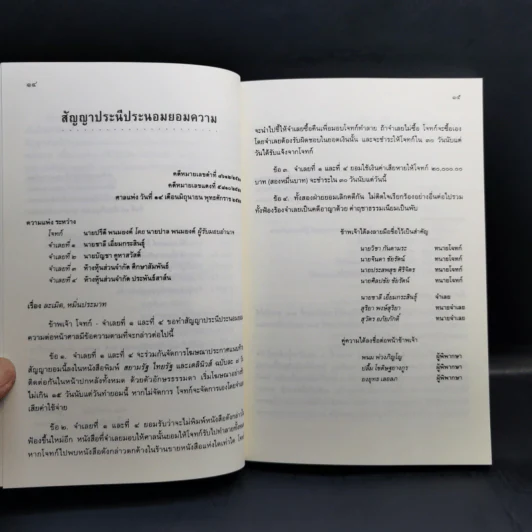 ๑๔
สัญญาประนีประนอมยอมความ
คดีหมายเลขดำที่
คดีหมายเลขแดงที่
ศาลแพ่ง วันที่ ๑๙ เดือนมิถุนายน พุทธศักราช
ความแพ่ง ระหว่าง
โจทก์ นายปรีดี พนมยงค์ โดย นายปาล พนมยงค์ ผู้รับมอบอำนาจ
จำเลยที่ ๑ นายชาลี เอี่ยมกระสินธุ์
จำเลยที่ ๒ นายบัญชา คูหาสวัสดิ์
จำเลยที่ ๓ ห้างหุ้นส่วนจำกัด ศึกษาสัมพันธ์
จำเลยที่ ๔ ห้างหุ้นส่วนจำกัด ประพันธ์สาส์น
เรื่อง ละเมิด, หมิ่นประมาท
ข้าพเจ้า โจทก์ - จำเลยที่ ๑ และที่ ๔ ขอทำสัญญาประนีประนอมยอม
ความต่อหน้าศาลมีข้อความตามที่จะกล่าวต่อไปนี้
ข้อ ๑. จำเลยที่ ๑ และที่ ๔ จะร่วมกันจัดการโฆษณาประกาศแนบท้าย
สัญญายอมนี้ลงในหนังสือพิมพ์ สยามรัฐ ไทยรัฐ และเดลินิวส์ ฉบับละ ๓ วัน
ติดต่อกันในหน้าปกหลังทั้งหมด ด้วยตัวอักษรธรรมดา เริ่มโฆษณาอย่างช้า
ไม่เกิน ๑๕ วันนับแต่วันทำยอม หากไม่จัดการ โจทก์จะจัดการเองโดยจำเลย
เสียค่าใช้จ่าย
ข้อ ๒. จำเลยที่ ๑ และที่ ๔ ยอมรับว่าจะไม่พิมพ์หนังสือดังกล่าว
ฟ้องขึ้นใหม่อีก หนังสือที่จำเลยมอบให้ศาลนั้นยอมให้โจทก์รับไปทำลาย
หากโจทก์ไปพบหนังสือดังกล่าวตกค้างในร้านขายหนังสือแห่งใดเท่าใด
๑๕
จะนำไปชี้ให้จำเลยซื้อคืนเพื่อมอบโจทก์ทำลาย ถ้าจำเลยไม่ซื้อ โจทก์จะซื้อเอง
โดยจำเลยต้องรับผิดชอบในยอดเงินนั้น และจะชำระให้โจทก์ใน ๓๐ วันนับแต่
วันได้รับแจ้งจากโจทก์
ข้อ ๓. จำเลยที่ ๑ และที่ ๔ ยอมใช้เงินค่าเสียหายให้โจทก์ ๒๐,๐๐๐.๐๐
บาท (สองหมื่นบาท) จะชำระใน ๓๐ วันนับแต่วันนี้
ข้อ ๔. ทั้งสองฝ่ายยอมเลิกคดีกัน ไม่ติดใจเรียกร้องอย่างอื่นต่อไปรวม
ทั้งฟ้องร้องจำเลยเป็นคดีอาญาด้วย ค่าฤชาธรรมเนียมเป็นพับ
ข้าพเจ้าได้ลงลายมือชื่อไว้เป็นสำคัญ
นายวิชา กันตามระ ทนายโจทก์
นายจินดา ชัยรัตน์ ทนายโจทก์
นายประสพสุข ศิริจิตร ทนายโจทก์
นายศิลปชัย ชัยรัตน์ ทนายโจทก์
นายชาลี เอี่ยมกระสินธุ์ จำเลย
สุริยา พงษ์สุริยา ทนายจำเลย
สุวัตร ทนายจำเลย
คู่ความได้ลงชื่อต่อหน้าข้าพเจ้า
พนม ผู้พิพากษา
ปลื้ม โชติษฐยางกูร ผู้พิพากษา
ผู้พิพากษา